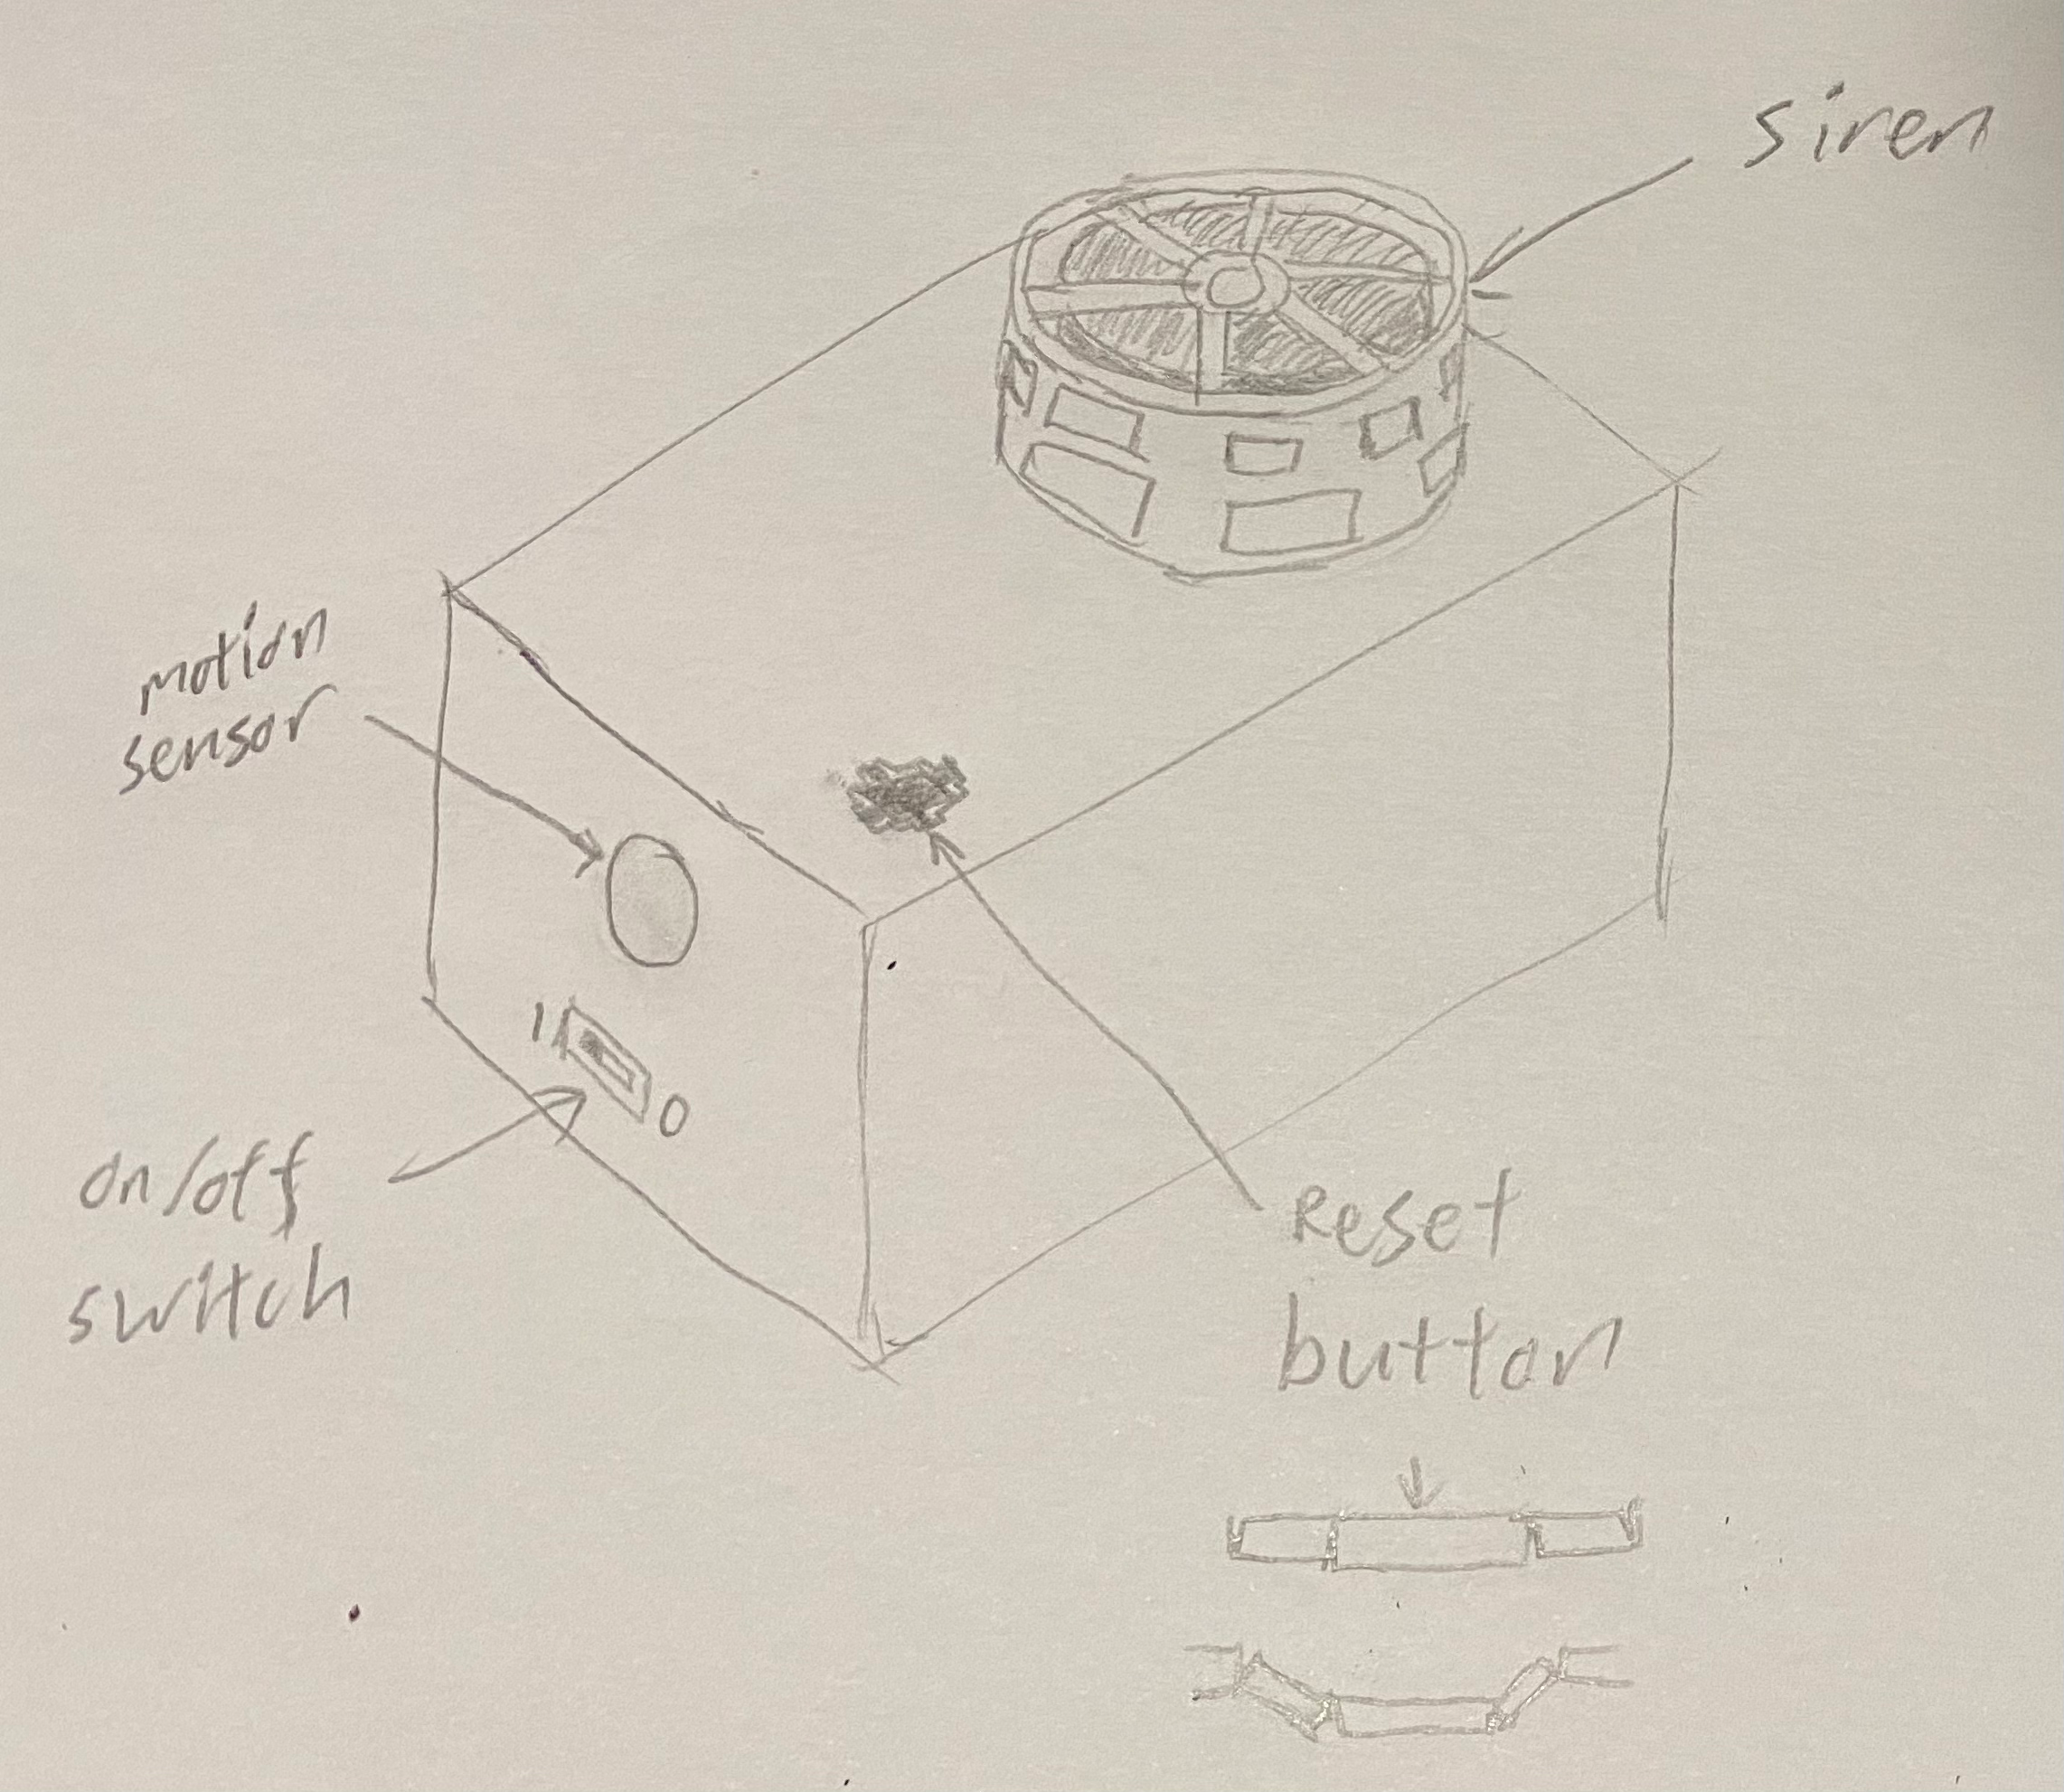 siren
motion
sensor
1
0
on/off
switch
Reset
button